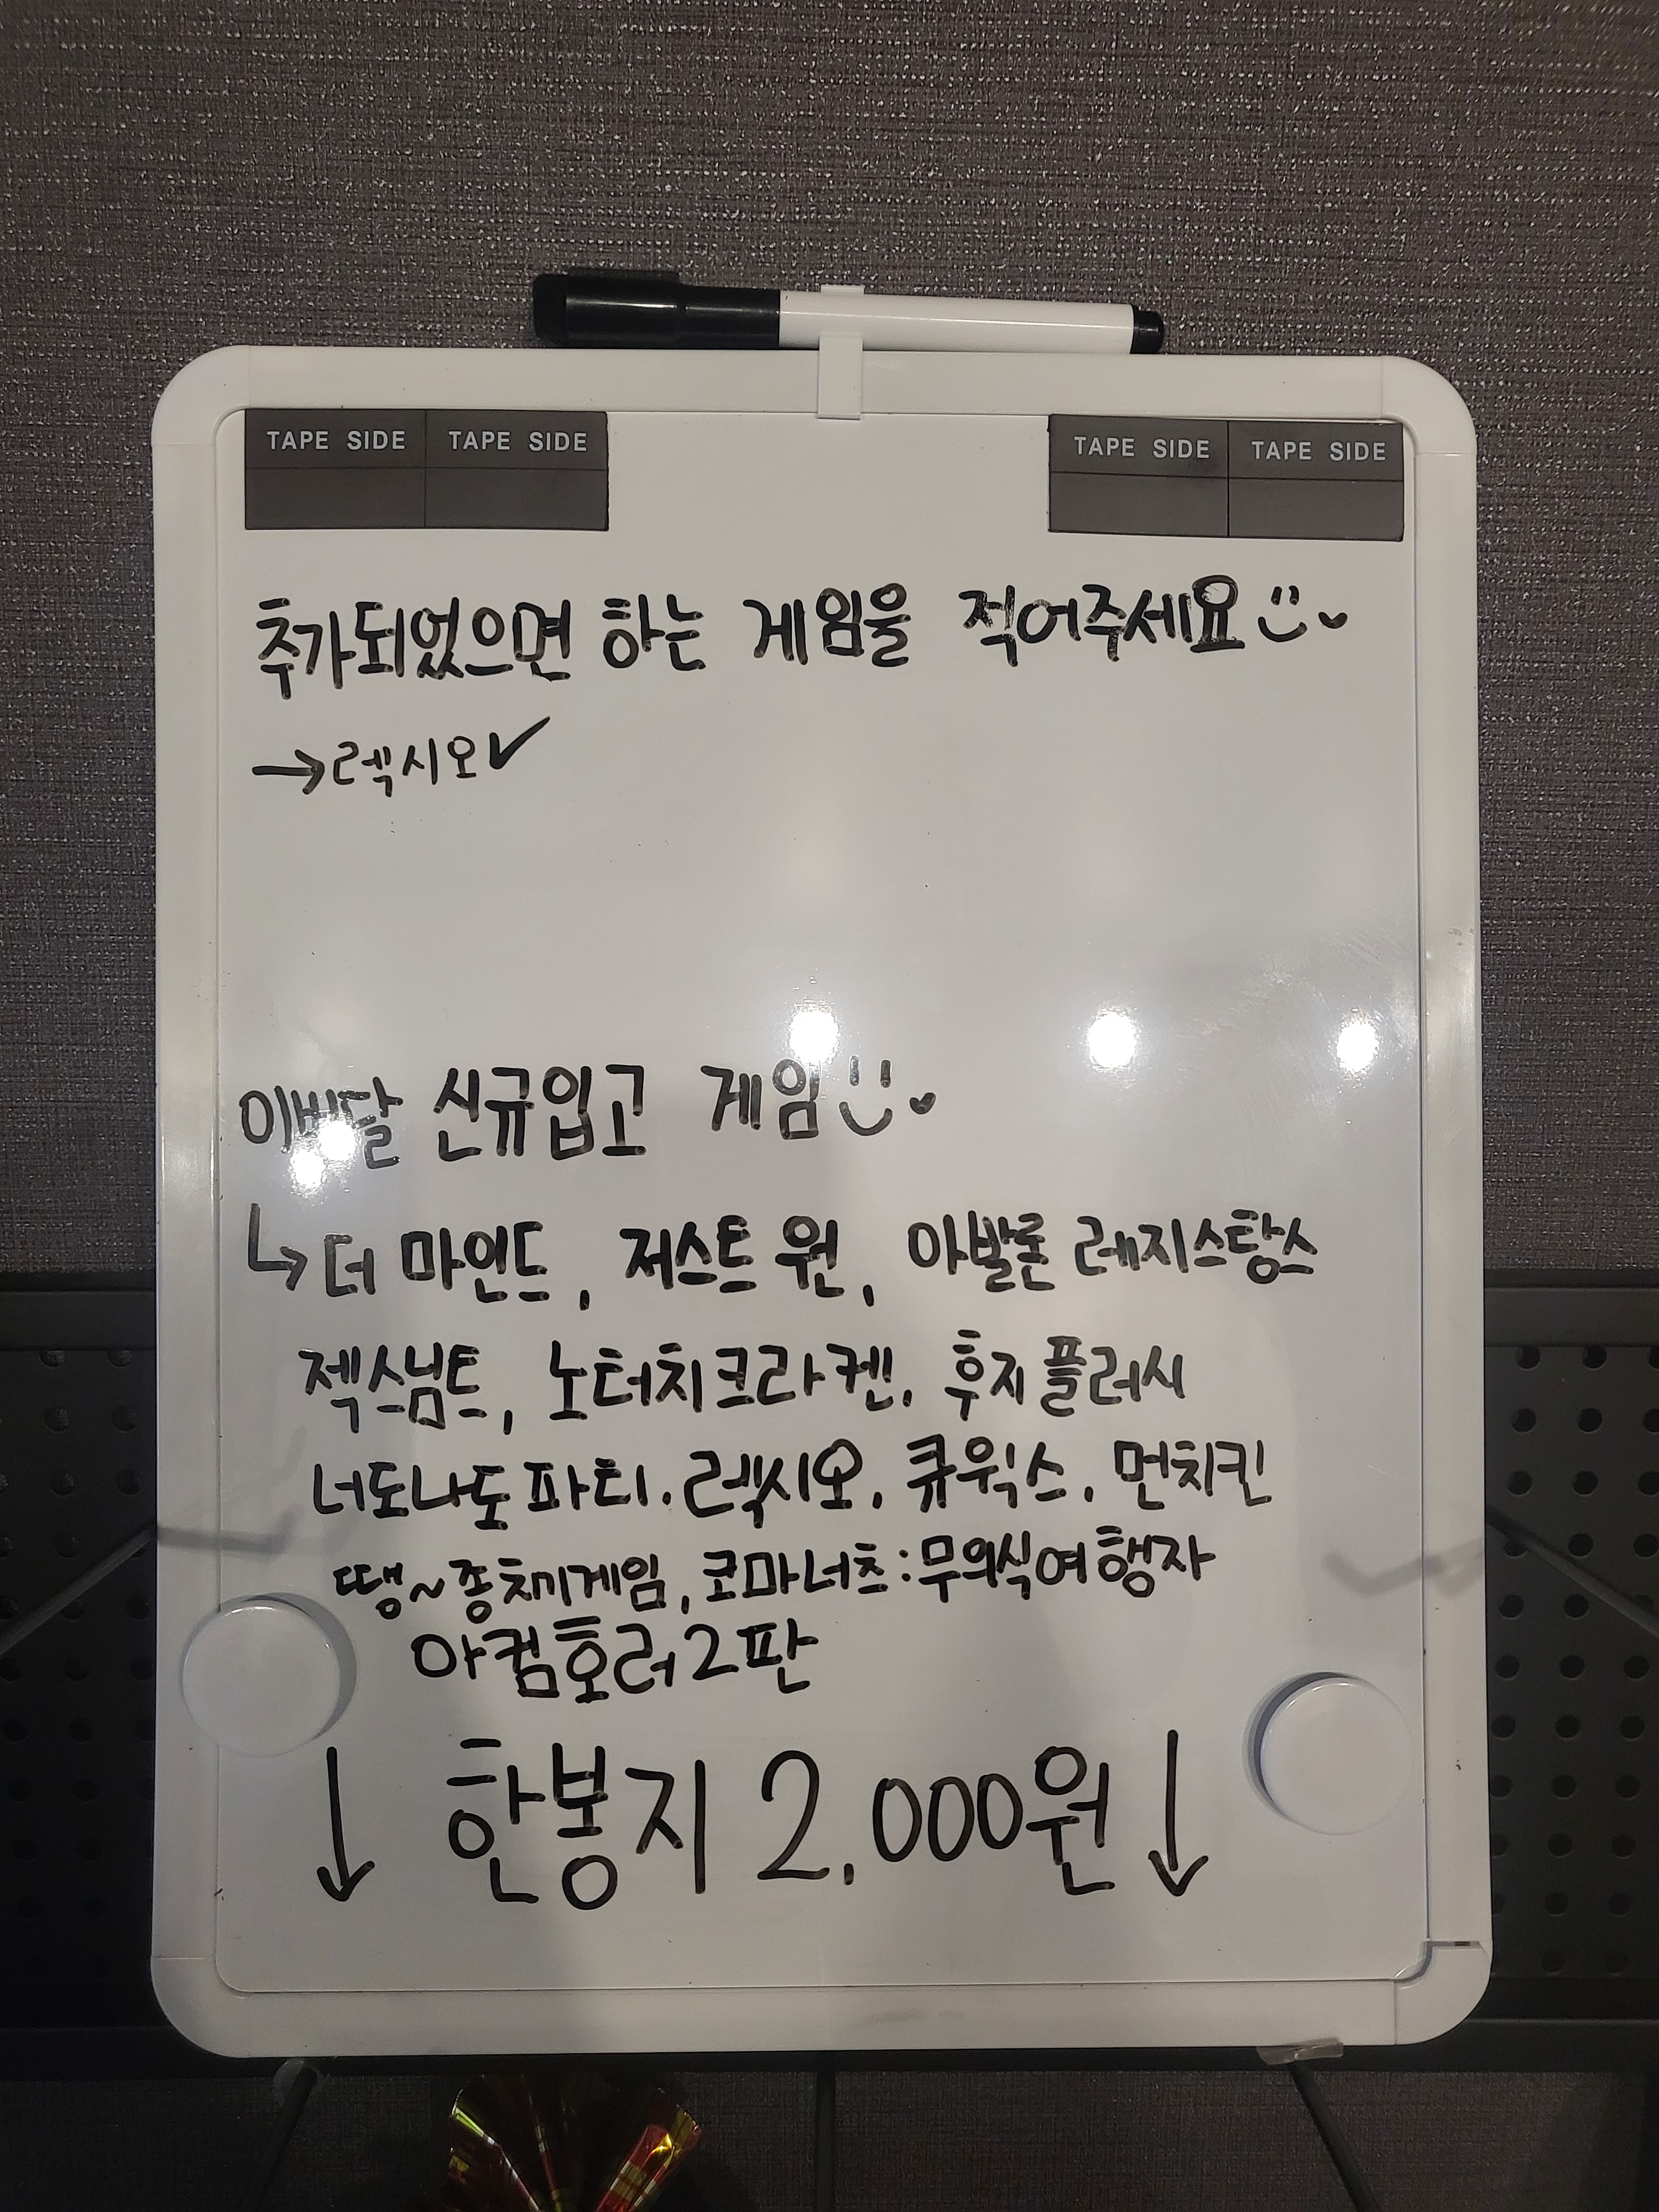 TAPE SIDE TAPE SIDE TAPE SIDE TAPE SIDE
추가되었으면 하는 게임을 적어주세요
→렉시오✓
이번달 신규입고 게임
↳더 마인드, 저스트 원, 아발론 레지스탕스
젝스님트, 노터치크라켄, 후지플러시
너도나도파티, 렉시오, 큐윅스, 먼치킨
땡~종치기게임, 코마너츠:무의식여행자
아컴호러2판
↓ 한봉지 2,000원 ↓